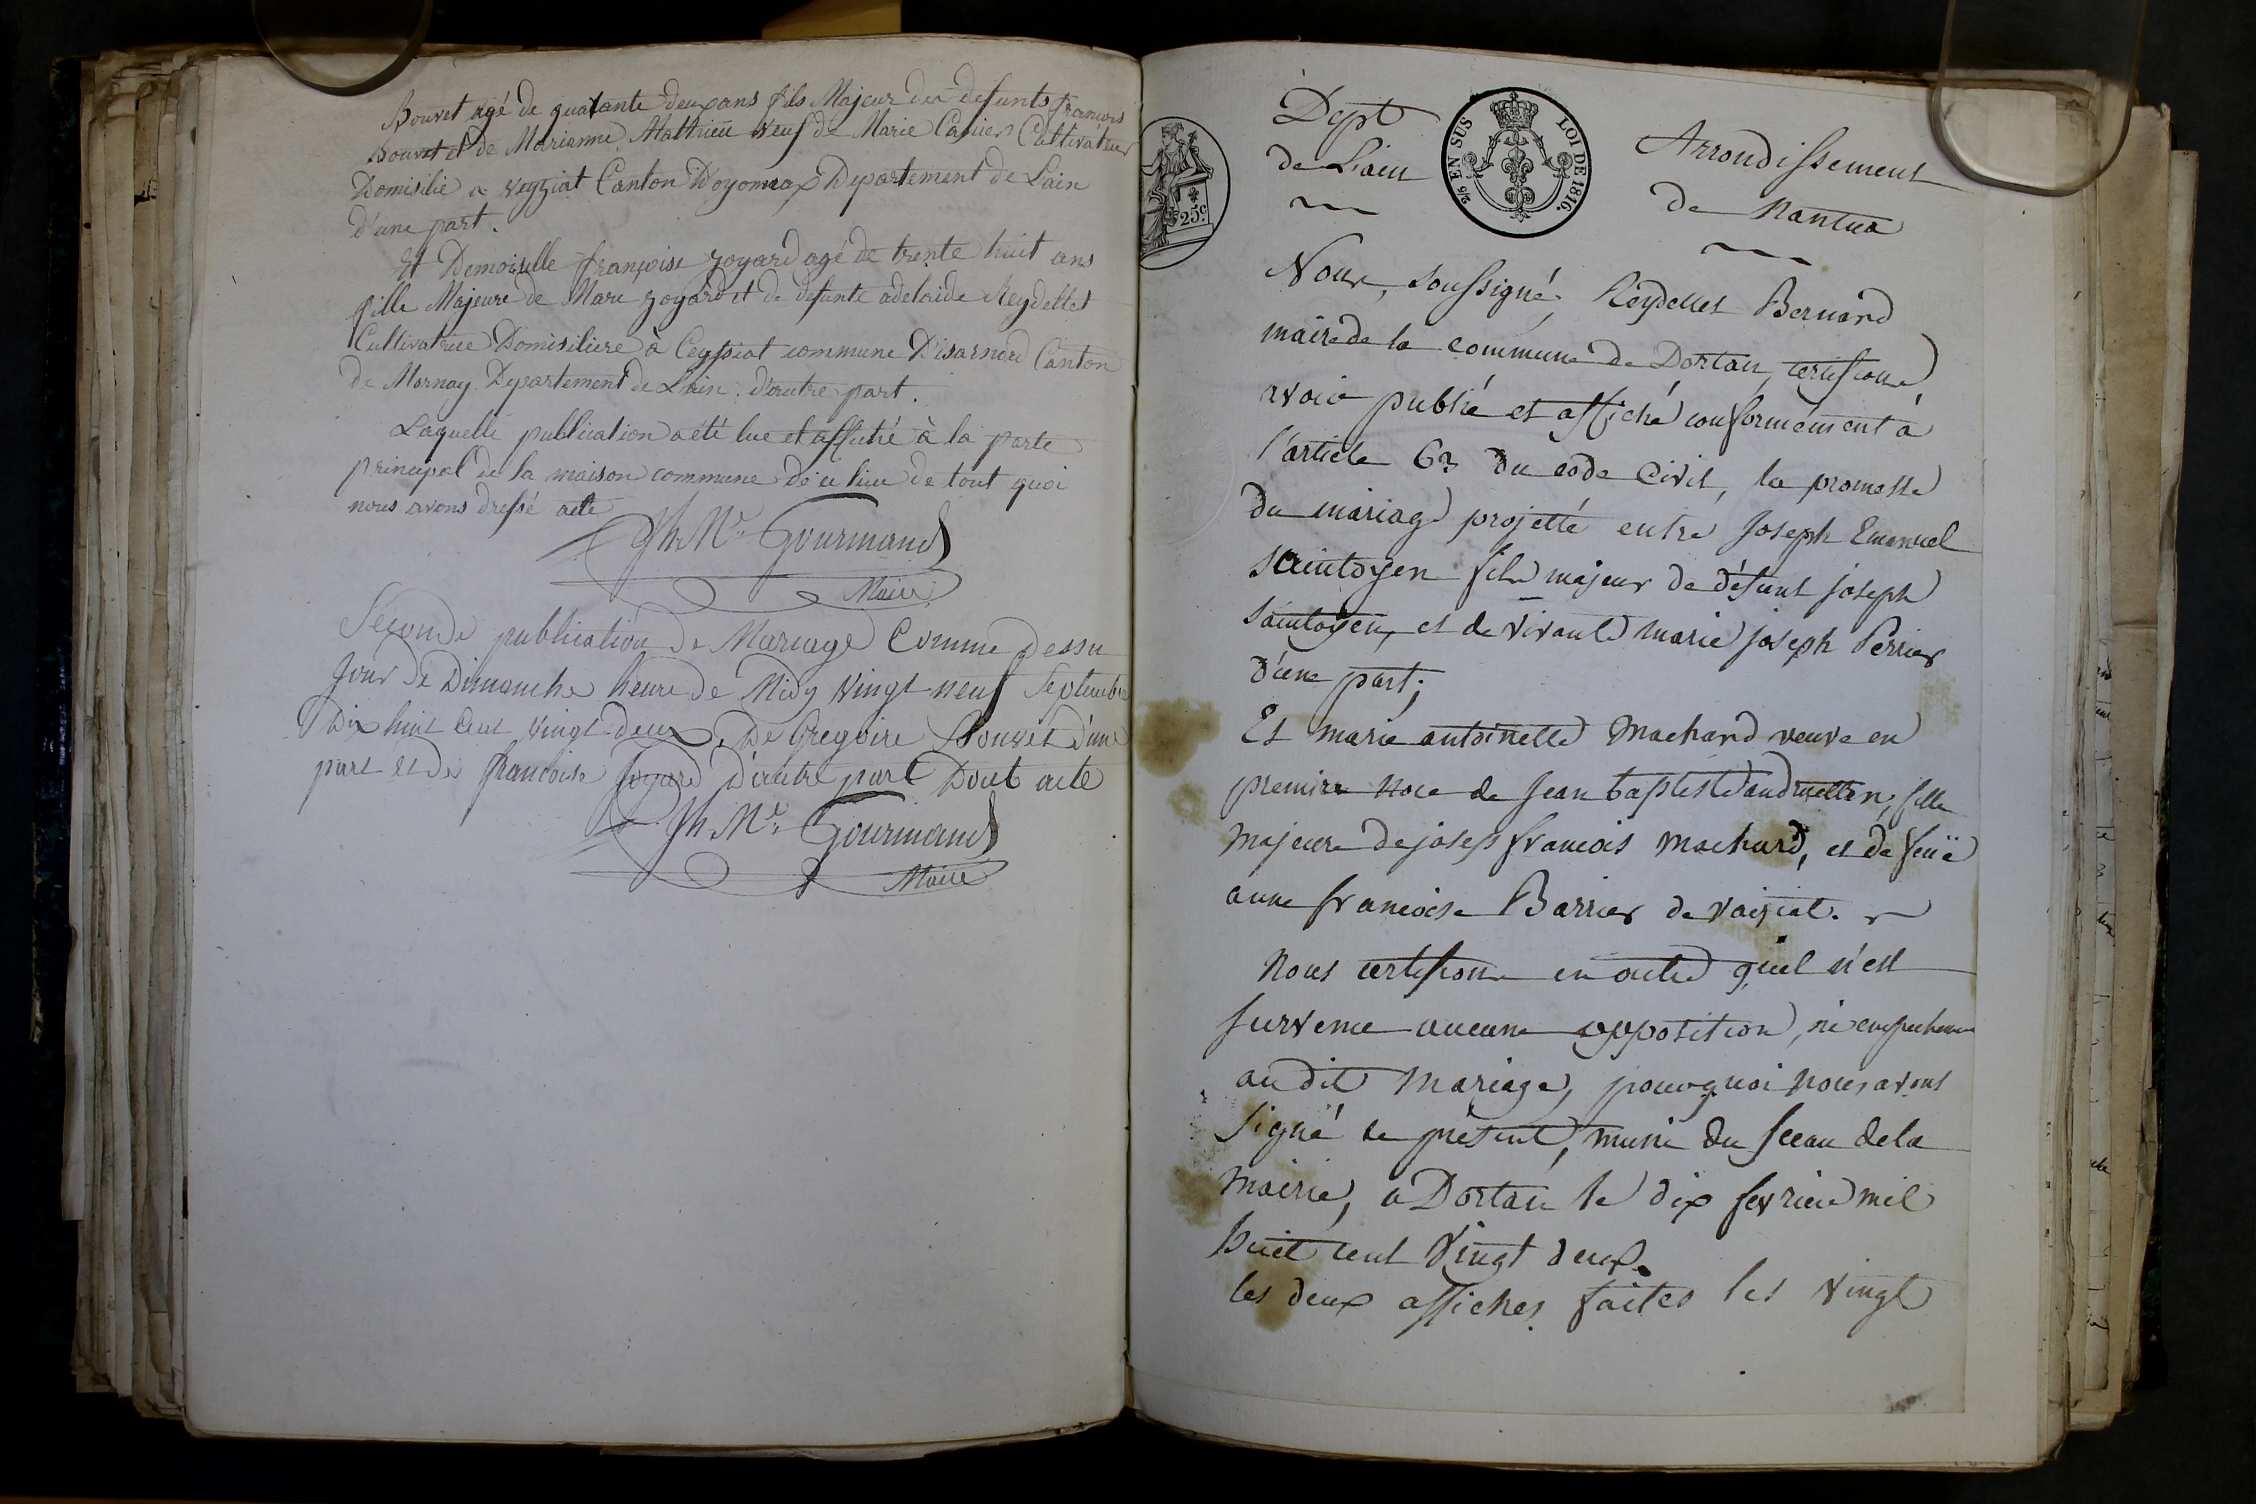 Bouvet agé de quatante deux ans fils Majeur des defunts francois
Bouvet et de Marianne Mathieu veuf de Marie Carrier Cultivateur
Domisilié a veyziat Canton Doyonnax Departement de Lain
d'une part.
Et Demoiselle françoise goyard agé de trente huit ans
fille Majeure de Marc goyard et de defunte adelaide Reydellet
Cultivatrice Domisiliere à Ceyssiat commune Disarnord Canton
de Mornay Departement de Lain. d'autre part.
Laquelle publication a été lue et affiché à la porte
principal de la maison commune de ce lieu de tout quoi
nous avons dressé acte
Jh Mie Gourmand
Maire
Seconde publication de Mariage Comme dessu
Jour de Dimanche heure de Midy Vingt neuf Septembre
Dix huit Cent Vingt-deux, De Gregoire Bouvet d'une
part et de francoise Goyard d'autre part Dont acte
Jh Mie Gourmand
Maire
Dept
de L'ain
2/5 EN SUS LOI DE 1816.
25c
Arrondissement
de Nantua
Nous, soussigné, Reydellet Bernard
maire de la commune de Dortan, certifions
avoir publié et affiché conformément à
l'article 63 du code Civil, la promesse
du mariage projetté entre Joseph Emanuel
Saintoyen fils majeur de défunt joseph
Saintoyen, et de vivante marie joseph Perrier
d'une part;
Et marie antoinette Machard veuve en
premire noce de Jean baptiste fille
majeure de joseph francois Machard, et de feuë
anne francoise Barrier de vaisiat.
Nous certifions en outre quil n'est
survenue aucune opposition, ni empechemen
au dit Mariage, pourquoi nous avons
signé le présent, muni du sceau de la
Mairie, a Dortan le dix fevrier mil
huit cent Vingt deux.
les deux affiches faites les vingt